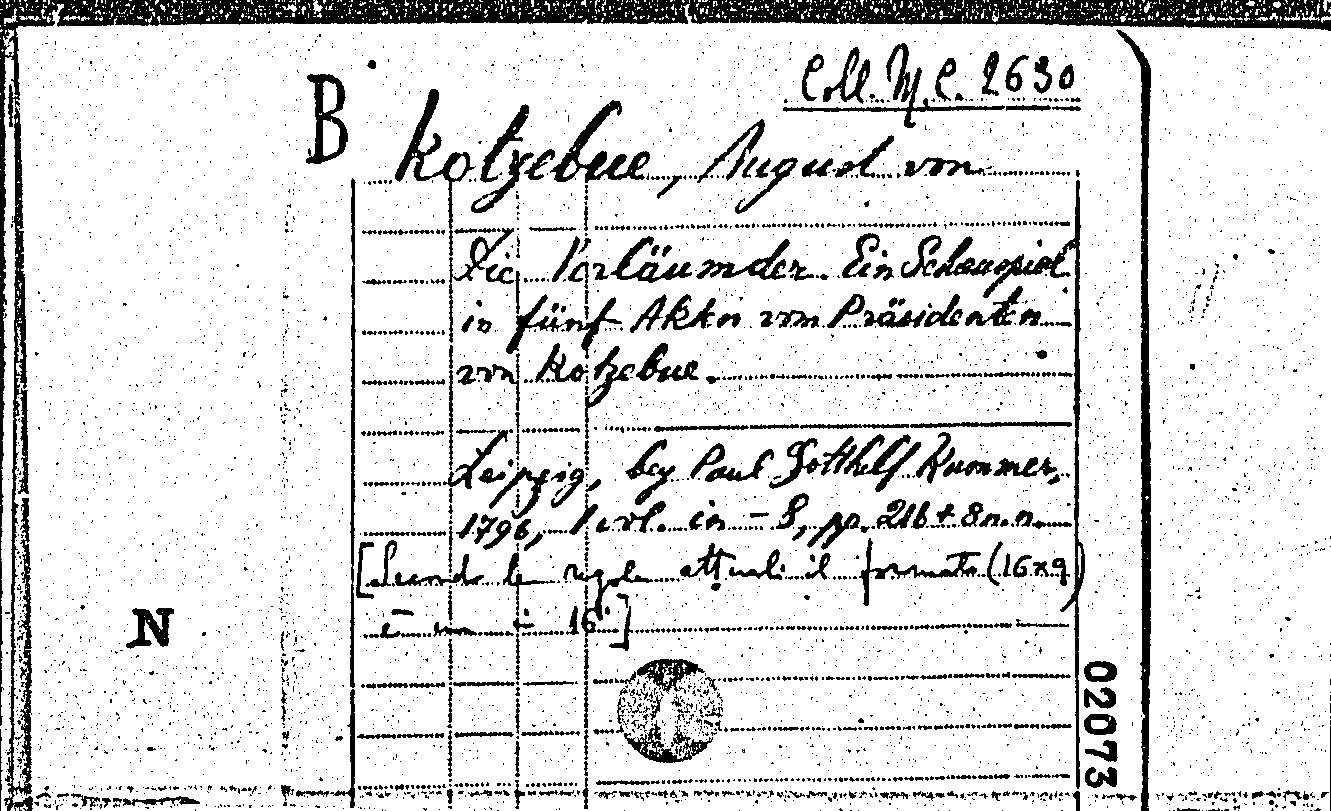 Coll. M. C. 2630
B
Kotzebue, August von
Die Verläumder. Ein Schauspiel
in fünf Akten vom Präsidenten
von Kotzebue.
Leipzig, bey Paul Gotthelf Kummer,
1796, 1 vol. in-8, pp. 216 + 8 n.n.
[Secondo le regole attuali il formato (16x9)
è un in 16°]
N
02073